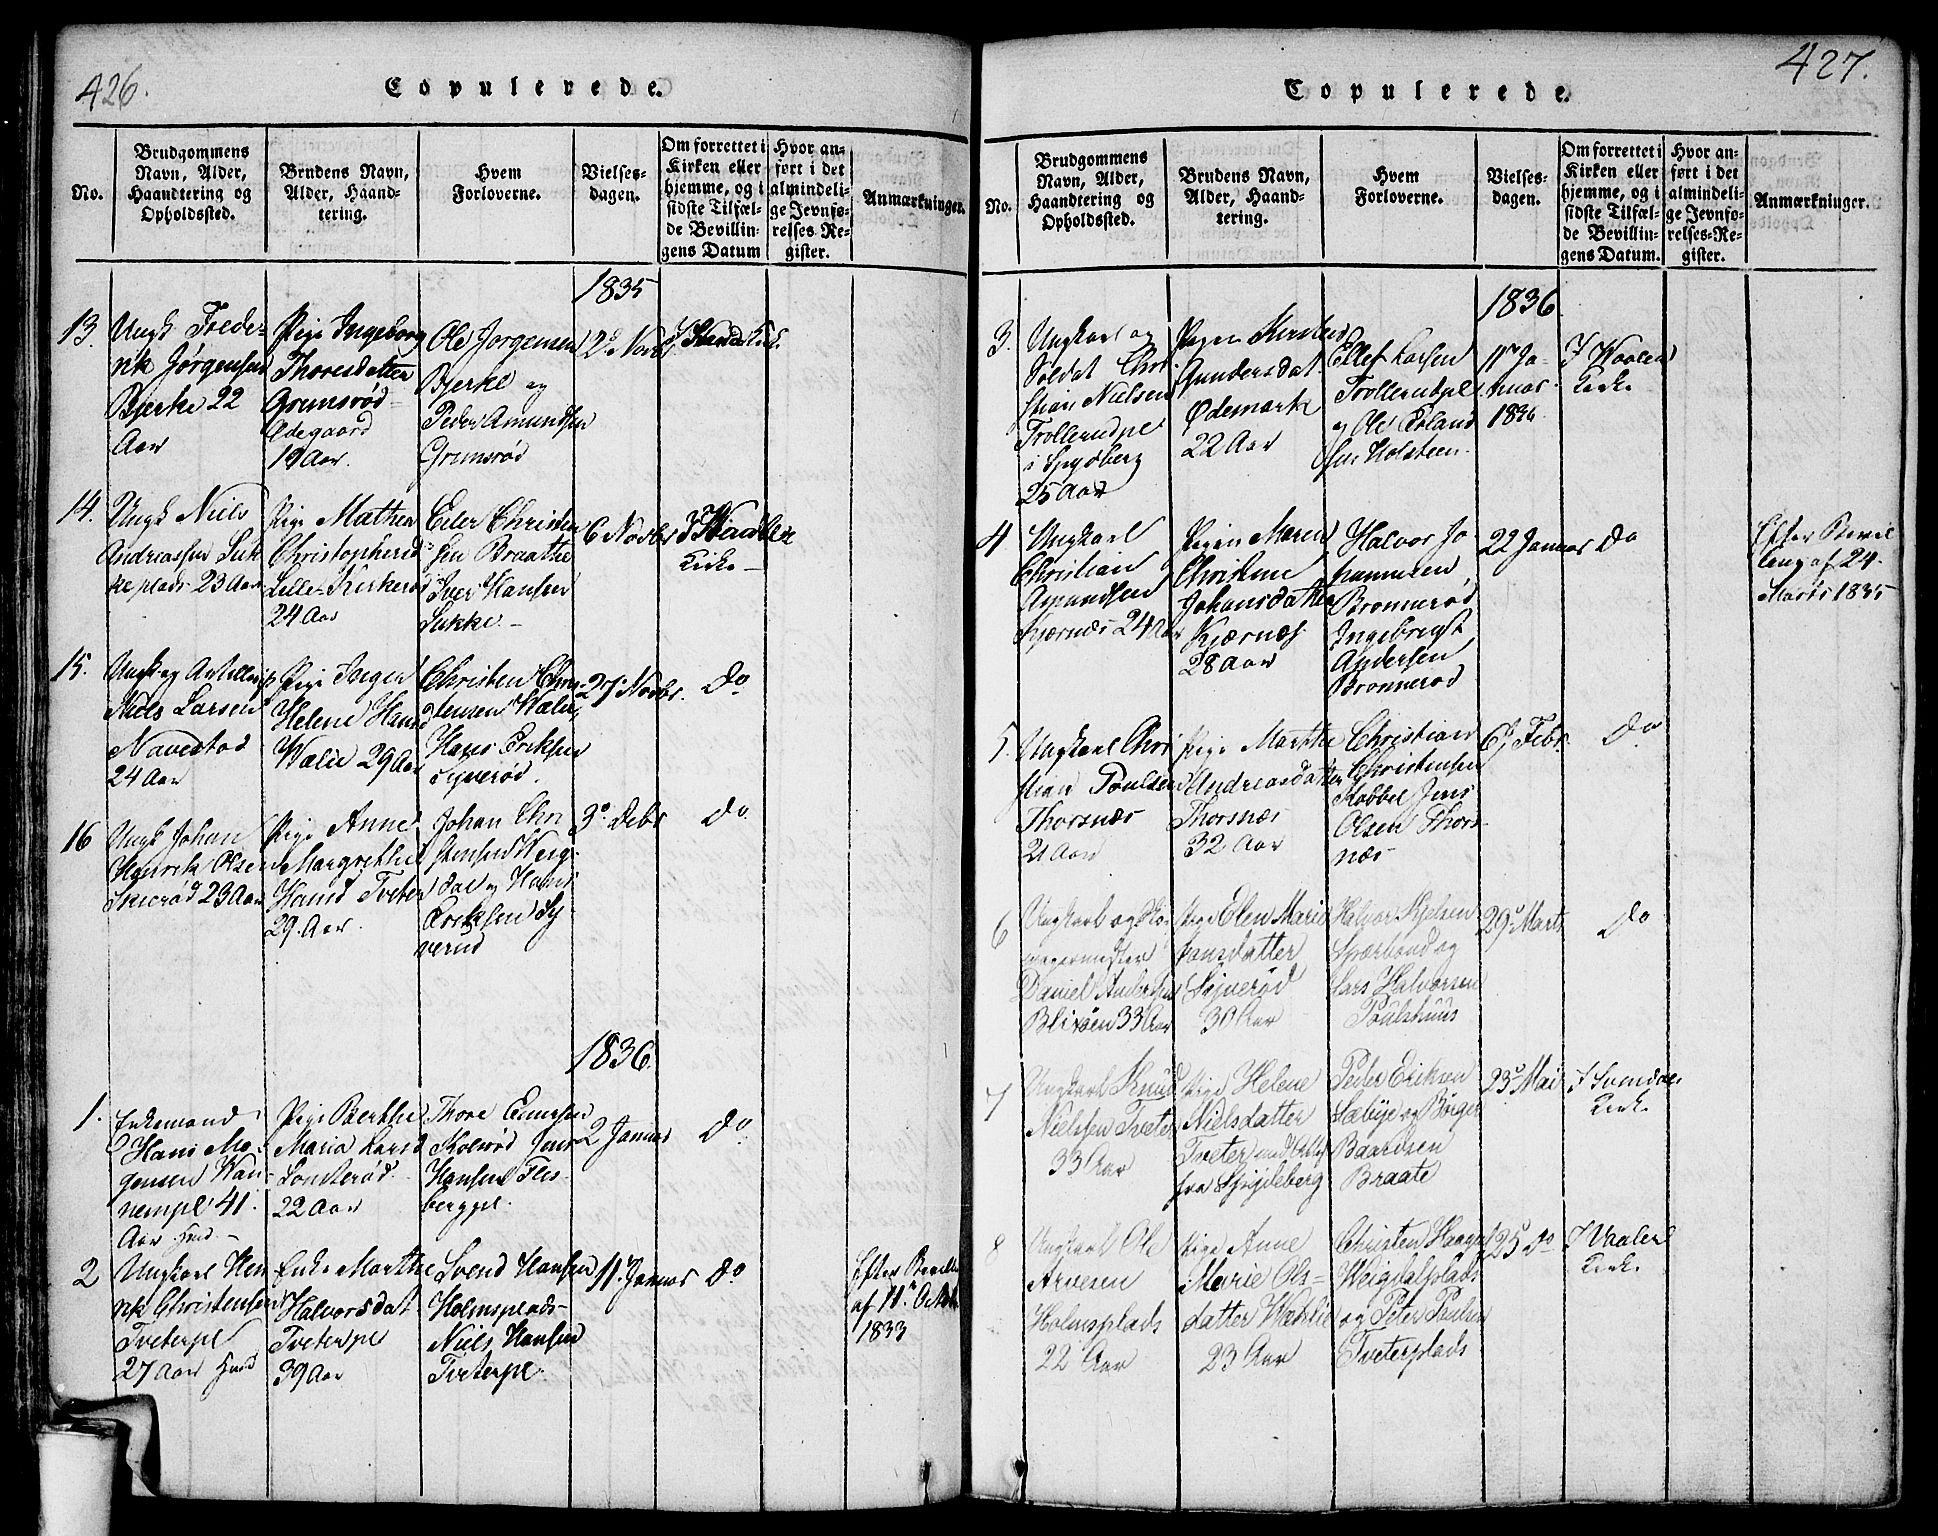 426.
Copulerede.
No.
Brudgommens
Navn, Alder,
Haandtering og
Opholdssted.
Brudens Navn,
Alder, Haand-
tering.
Hvem
Forloverne.
Vielses-
dagen.
Om forrettet i
Kirken eller
hjemme, og i
sidste Tilfæl-
de Bevillin-
gens Datum
Hvor an-
ført i det
almindeli-
ge Jevnfø-
relses-Re-
gister.
Anmærkninger.
1835
13.
Ungk Frede-
rik Jørgensen
Bjerke 22
Aar
Pige Ingeborg
Thoresdatter
Grimsrød
Ødegaard
19 Aar.
Ole Jørgensen
Bjerke og
Peder Amundsen
Grimsrød
2de Novb
14.
Ungk Niels
Andreassen Suk-
keplads 23 Aar
Pige Mathea
Christophersd
Lille-Kirkerød
24 Aar
Eiler Christen
sen Braathe
Iver Hansen
Sukke.
6 Novbr
Kirke
15.
Ungk og Artillerist
Niels Larsen
Navestad
24 Aar
Pige Inger
Helene Hansd
Wælie 29 Aar
Christen Chri-
stensen Wælie
Hans Eriksen
Sigverød.
27 Novbr.
Do
16
Ungk Johan
Henrik Olsen
Skierød 23 Aar
Pige Anne
Margrethe
Hansd Tveter
29 Aar.
Johan Chri
stensen Weg-
dal og Hans
Eriksen Sy
verud
3de Debr
Do
1836
1.
Enkemand
Hans Mo-
gensen Wan-
nempl 41.
Aar
Pige Berthe
Maria Larsd
Lonsterød
22 Aar
Thore Einersen
Kolsrød Jens
Hansen Fles-
bergpl.
2 Januar
Do
2
Ungkarl Hen
rik Christensen
Tveterpl
27 Aar
Enke Marthe
Halvorsdat
Tveterpl
39 Aar
Svend Hansen
Holmsplads
Niels Hansen
Tveterpl.
11. Januar
Do
Efter Bevilln
af 11. Octob
1833
427.
Copulerede.
No.
Brudgommens
Navn, Alder,
Haandtering og
Opholdssted.
Brudens Navn,
Alder, Haand-
tering.
Hvem
Forloverne.
Vielses-
dagen.
Om forrettet i
Kirken eller
hjemme, og i
sidste Tilfæl-
de Bevillin-
gens Datum.
Hvor an-
ført i det
almindeli-
ge Jevnfø-
relses-Re-
gister.
Anmærkninger.
1836
3.
Ungkarl og
Soldat Chri
stian Nielsen
Trollerudpe
i Spydberg
25 Aar
Pigen Kirsten
Gundersdat
Ødemark
22 Aar
Ellef Larsen
Trollerudpl
og Ole Erland
sen Holsteen
11 Ja-
nuar
1836
I Waaler
Kirke
4
Ungkarl
Christian
Amundsen
Kjærnæs 24 Aar
Pigen Maren
Christine
Johansdatter
Kjærnæs
28 Aar
Halvor Jo
hannesen
Brønnerød
Ingebregt
Andersen
Brønnerød
22 Januar
Do
Efter Bevil
ling af 24
Marts 1835
5.
Ungkarl Chri
stian Poulsen
Thorsnæs
21 Aar
Pige Marthe
Andreasdatter
Thorsnæs
32 Aar
Christian
Christensen
Kobbel Jens
Olsen Thors-
næs
6 Febr.
Do
6
Ungkarl og Sko
magermester
Daniel Andersen
Blixøen 33 Aar
Pige Elen Marie
Hansdatter
Sigverød
30 Aar
Halvor Nielsen
Spærbond og
Lars Halvorsen
Poulshuus
29 Marts
Do
7
Ungkarl Knud
Nielssen Tveter
33 Aar
Pige Helene
Nielsdatter
Tveter med Attest
fra Spydeberg
Peder Eriksen
Sæbye og Børger
Baardsen
Braate
23 Mai
I Svendal
Kirk
8
Ungkarl Ole
Arvesen
Holmsplads
22 Aar
Pige Anne
Marie Ols-
datter Wæhlie
23 Aar
Christen Haagen
Weigdalplads
og Peter Poulsen
Tveterplads
25 do
I Vaaler
Kirke